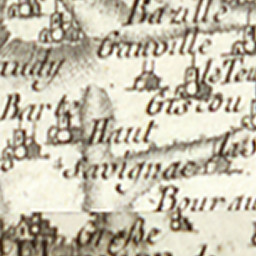 Bazille
Gauville
audy
le Teu
Bart
Giscou
Haut
Savignac
Bourau
Greße